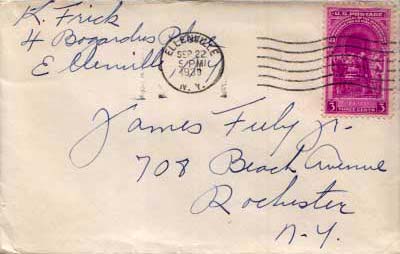 K. Frick
4 Bogardus Place
Ellenville
ELLENVILLE
SEP 22
5 PM
N. Y.
U.S. POSTAGE
3 THREE CENTS 3
James Fuly Jr.
708 Beach Avenue
Rochester
N-Y.